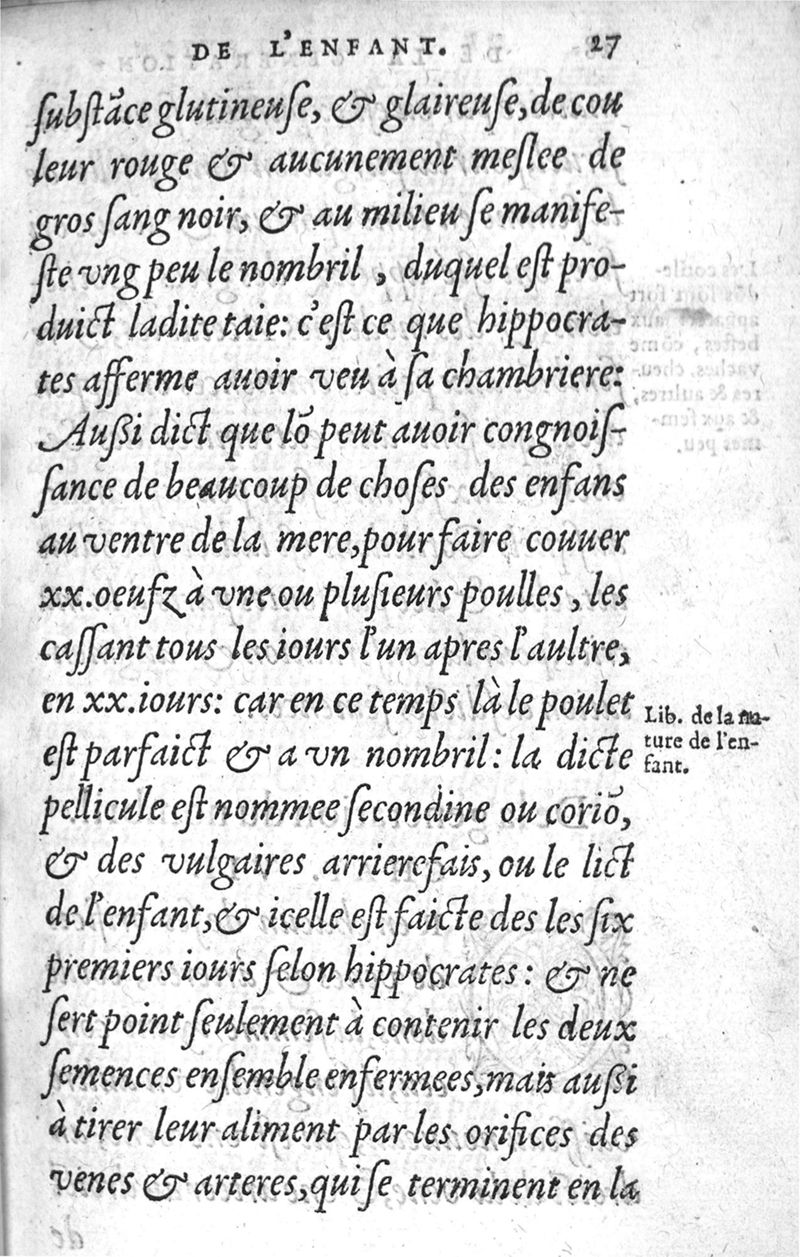 DE L'ENFANT. 27
ſubſtãce glutineuſe, & glaireuſe, de cou
leur rouge & aucunement meſlee de
gros ſang noir, & au milieu ſe manife-
ſte vng peu le nombril , duquel eſt pro-
duict ladite taie: c'eſt ce que hippocra-
tes afferme auoir veu à ſa chambriere:
Auſſi dict que lõ peut auoir congnoiſ-
ſance de beaucoup de choſes des enfans
au ventre de la mere, pour faire couuer
xx. oeufz à vne ou pluſieurs poulles , les
caſſant tous les iours l'un apres l'aultre,
en xx. iours: car en ce temps là le poulet
eſt parfaict & a vn nombril: la dicte
pellicule eſt nommee ſecondine ou coriõ,
& des vulgaires arrierefais, ou le lict
de l'enfant, & icelle eſt faicte des les ſix
premiers iours ſelon hippocrates: & ne
ſert point ſeulement à contenir les deux
ſemences enſemble enfermees, mais auſſi
à tirer leur aliment par les orifices des
venes & arteres, qui ſe terminent en la
Lib. de la na-
ture de l'en-
fant.